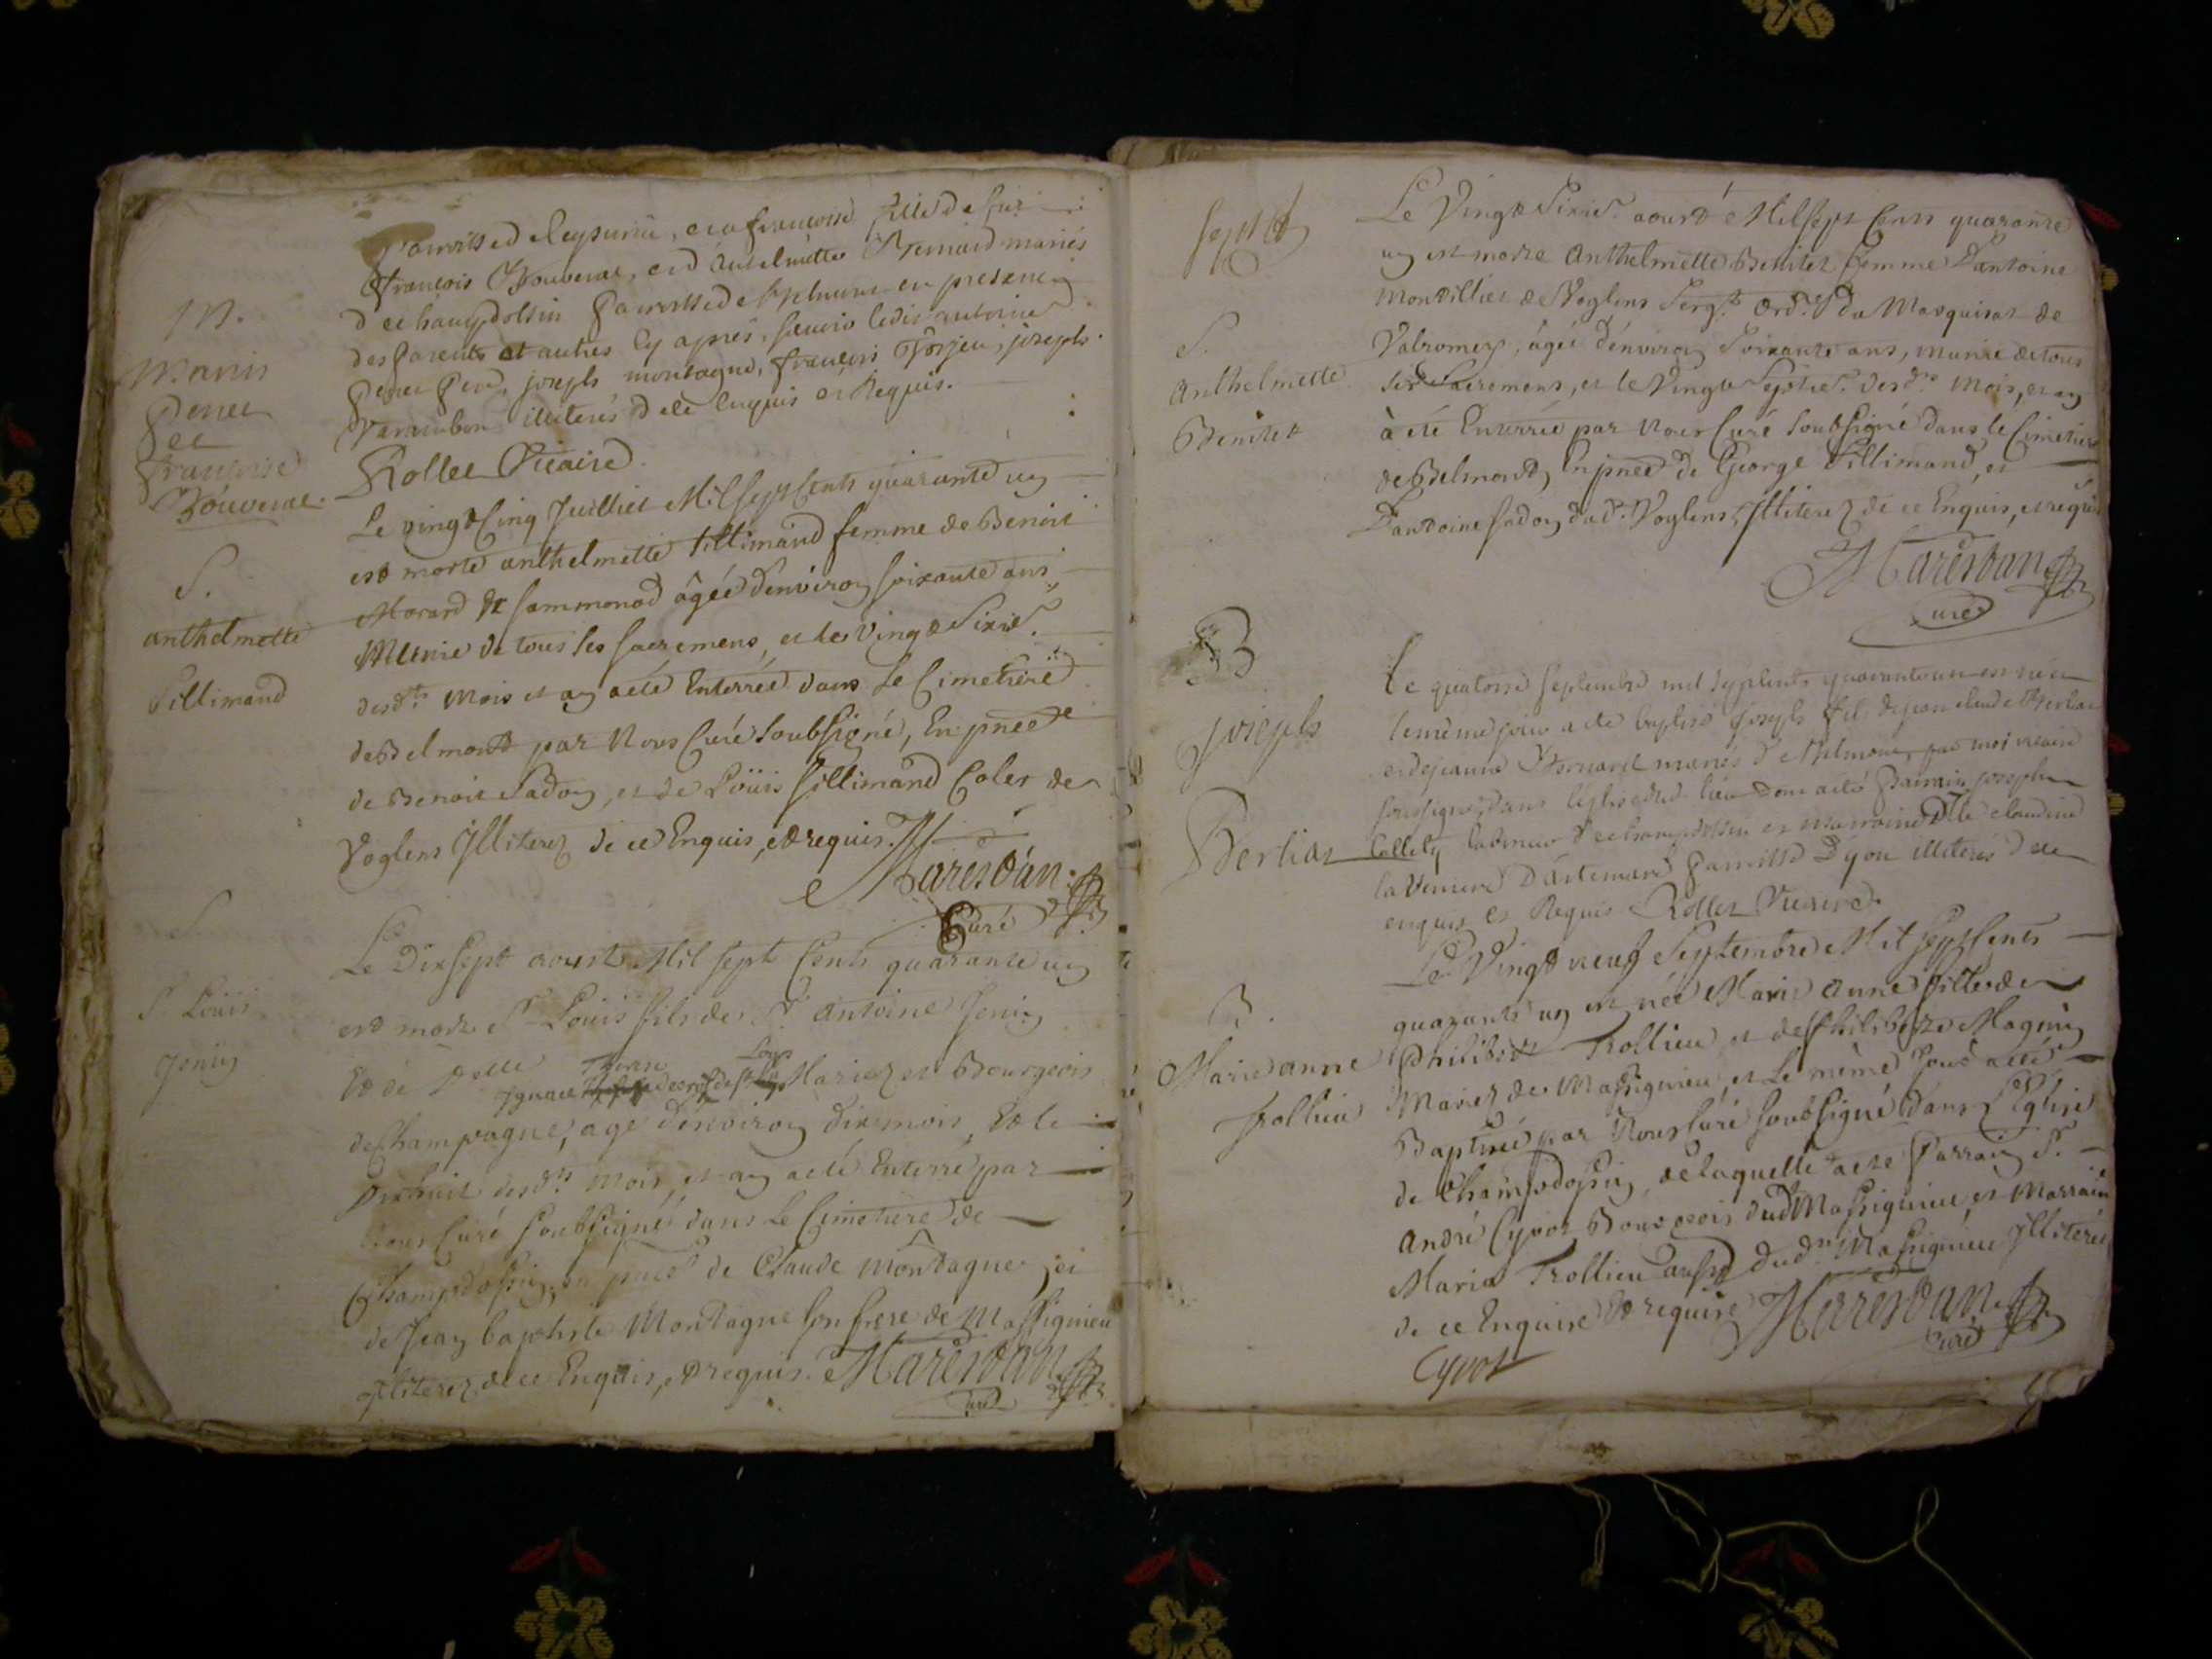 M.
Marin
Peruet
et
francoise
Bouverat
francoise fille de
francois Bouverat, et d'antelmette Bernard mariés
de champdossin parroisse de en presence
des parents et autres cy apres, scavoir ledit antoine
Peruet Pere, joseph montagne, francois joseph
illiterés de ce enquis et Requis.
Rollet Vicaire
S.
anthelmette
Sillimand
Le vingt Cinq Juilliet Mil Sept Cents quarante un
est morte anthelmette Sillimand femme de Benoit
Morard de sammonod âgée d'environ soixante ans
Munie de tous les sacremens, et le Vingt Sixie.
desd.ts mois et an a eté Enterrée dans Le Cimetiere
de Belmont par Nous Curé Soubsigné, En pnce
de Benoit Sadon, et de Loüis Sillimand Coler de
Voglens Illiterez de ce Enquis, et requis.
Maresdan
Curé
S
S.r Loüis
Jenin
Le Dix Sept aoust Mil sept Cents quarante un
est mort S.r Loüis fils de S.r antoine Jenin
Et de Delle
Ignace Mariez et Bourgeois
de Champagne, agé d'environ dix mois, Et le
Dixhuit desd.ts mois, et an a eté Enterré par
Nous Curé Soubsigné dans Le Cimetiere de
Champdossin, en pnce de Claude Montagne, et
de Jean baptiste Montagne son frere de Massignieu
Illiterez de ce Enquis, et requis. Maresdan
Curé
Sept
S.
Anthelmette
Benitet
Le Vingt Sixie. aoust Mil Sept Cents quarante
un est morte Anthelmette Benitet femme D'antoine
Montillier de Voglens Serg.t Ord.re du Marquisat de
Valromey, âgée d'environ Soixante ans, munie de tous
les Sacremens, et le Vingt Septie. desd.ts Mois, et an
à eté Enterrée par Nous Curé Soubsigné dans le Cimetiere
de Belmont, En pnce de George Sillimand, et
D'antoine Sadon dud. Voglens, Illiterez de ce Enquis, et requis
Maresdan
Curé
B
Joseph
Berliat
Le quatorse septembre mil sept cents quarante un est né et
le meme jour a eté baptisé Joseph fils de jean claude Berliat
et de jeanne Bernard mariés de Belmont, par moi vicaire
soussigné, dans l'église dud. lieu dont a eté Parrain joseph
Collet laboureur de champdossin et marraine Dlle claudine
la Verriere D'artemare parroisse Dyon illiterés de ce
enquis et Requis Rollet Vicaire
B.
Marie anne
Trollieu
Le Vingt neuf Septembre Mil Sept Cents
quarante un est née Marie anne fille de
Philibert Trollieu et de Philiberte Magnin
Mariez de Massignieu, et Le même Jour a eté
Baptisée par Nous Curé Soubsigné dans L'Eglise
de Champdossin, de laquelle a eté Parrain S.r
André Cyvot Bourgeois dud Massignieu, et Marraine
Maria Trollieu aussy dud.t Massignieu Illiterée
de ce Enquise Et requise Maresdan
Curé
Cyvot